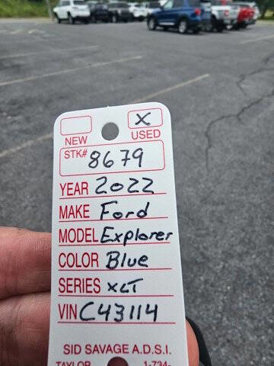 X
NEW USED
STK# 8679
YEAR 2022
MAKE Ford
MODEL Explorer
COLOR Blue
SERIES XLT
VIN C43114
SID SAVAGE A.D.S.I.
TAYLOR 1-734-